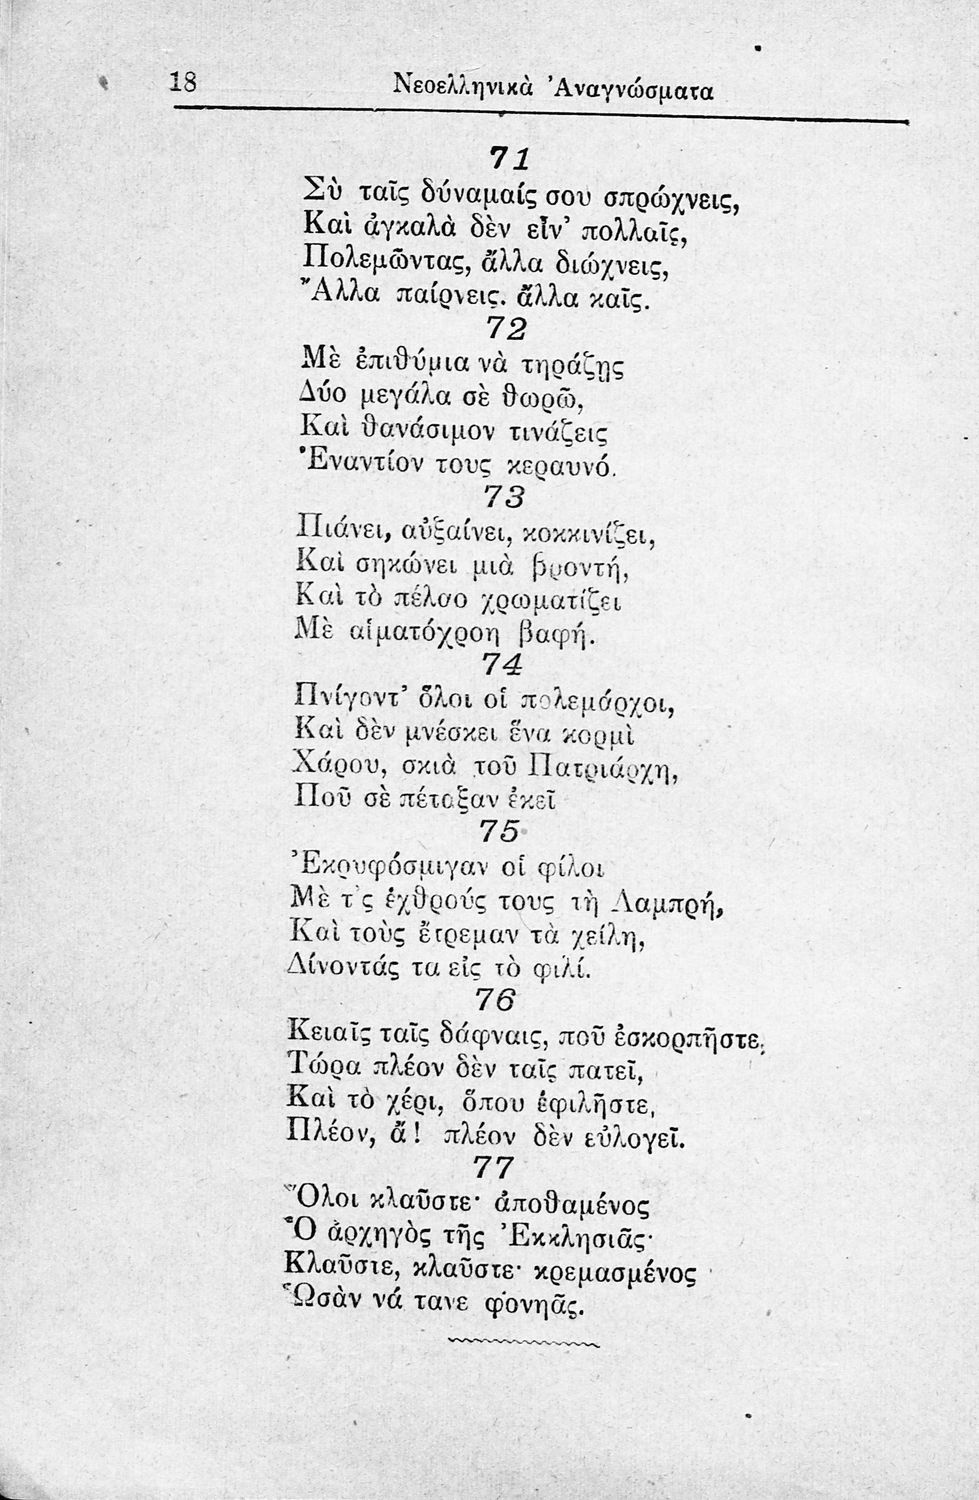 18 Νεοελληνικὰ Ἀναγνώσματα
71
Σὺ ταῖς δύναμαίς σου σπρώχνεις,
Καὶ ἀγκαλὰ δὲν εἶν' πολλαῖς,
Πολεμῶντας, ἄλλα διώχνεις,
Ἄλλα παίρνεις. ἄλλα καῖς.
72
Μὲ ἐπιθύμια νὰ τηράζῃς
Δύο μεγάλα σὲ θωρῶ,
Καὶ θανάσιμον τινάζεις
Ἐναντίον τους κεραυνό.
73
Πιάνει, αὐξαίνει, κοκκινίζει,
Καὶ σηκώνει μιὰ βροντή,
Καὶ τὸ πέλαο χρωματίζει
Μὲ αἱματόχροη βαφή.
74
Πνίγοντ' ὅλοι οἱ πολεμάρχοι,
Καὶ δὲν μνέσκει ἕνα κορμὶ
Χάρου, σκιὰ τοῦ Πατριάρχη,
Ποῦ σὲ πέταξαν ἐκεῖ
75
Ἐκρυφόσμιγαν οἱ φίλοι
Μὲ τ'ς ἐχθρούς τους τὴ Λαμπρή,
Καὶ τοὺς ἔτρεμαν τὰ χείλη,
Δίνοντάς τα εἰς τὸ φιλί.
76
Κειαῖς ταῖς δάφναις, ποῦ ἐσκορπῆστε,
Τώρα πλέον δὲν ταῖς πατεῖ,
Καὶ τὸ χέρι, ὅπου ἐφιλῆστε,
Πλέον, ἄ! πλέον δὲν εὐλογεῖ.
77
Ὅλοι κλαῦστε· ἀποθαμένος
Ὁ ἀρχηγὸς τῆς Ἐκκλησιᾶς·
Κλαῦστε, κλαῦστε· κρεμασμένος
Ὡσὰν νά τανε φονηᾶς.